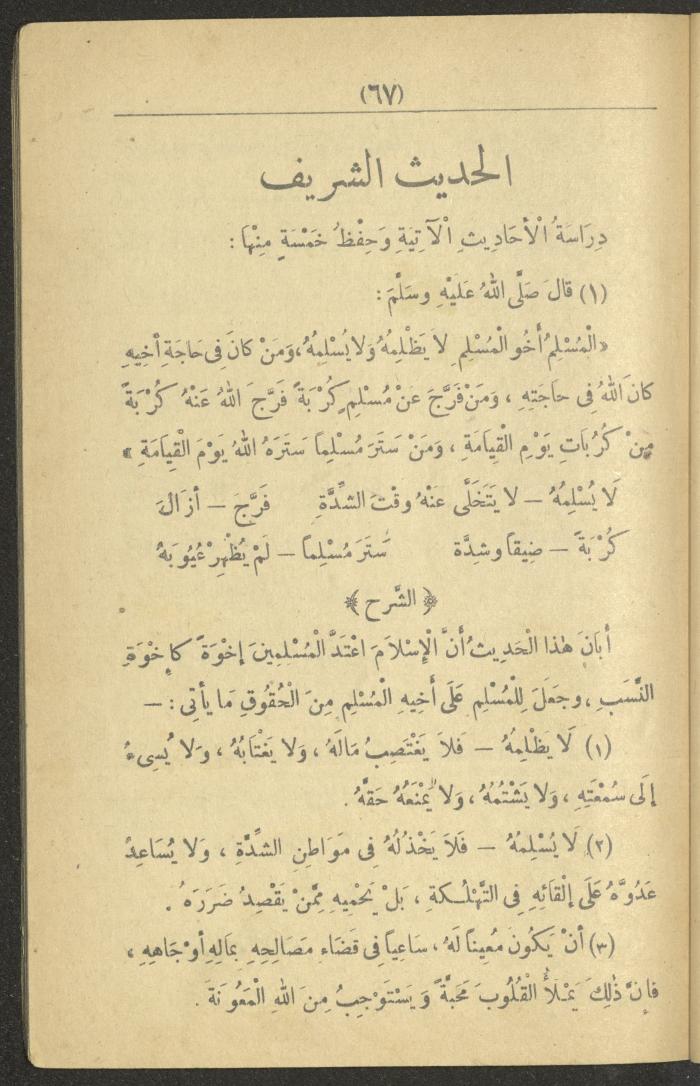 (٦٧)
الحديث الشريف
دِرَاسَةُ الْأَحَادِيثِ الْآتِيَةِ وَحِفْظُ خَمْسَةٍ مِنْهَا :
(١) قالَ صَلَّى اللهُ عَلَيْهِ وسَلَّمَ :
«الْمُسْلِمُ أَخُو الْمُسْلِمِ لَا يَظْلِمُهُ وَلَا يُسْلِمُهُ، وَمَنْ كانَ فِى حَاجَةِ أَخِيهِ
كانَ اللهُ فِى حاجَتِهِ ، وَمَنْ فَرَّجَ عَنْ مُسْلِمٍ كُرْبَةً فَرَّجَ اللهُ عَنْهُ كُرْبَةً
مِنْ كُرُبَاتِ يَوْمِ الْقِيامَةِ ، وَمَنْ سَتَرَ مُسْلِماً سَتَرَهُ اللهُ يَوْمَ الْقِيَامَةِ »
لَا يُسْلِمُهُ — لا يَتَخَلَّى عَنْهُ وقْتَ الشِّدَّةِ فَرَّجَ — أزَالَ
كُرْبَةً — ضِيقاً وشِدَّة سَتَرَ مُسْلِماً — لَمْ يُظْهِرْ عُيُوبَهُ
﴿ الشَّرح ﴾
أبَانَ هٰذا الْحَدِيثُ أَنَّ الْإِسْلَامَ اعْتَدَّ الْمُسْلِمِينَ إخْوَةً كإِخْوَةِ
النَّسَبِ ، وجَعَلَ لِلْمُسْلِمِ عَلَى أَخِيهِ الْمُسْلِمِ مِنَ الْحُقُوقِ مَا يأتِى : —
(١) لَا يَظْلِمُهُ — فَلاَ يَغْتَصِبُ مَالَهُ ، وَلَا يَغْتَابُهُ ، وَلَا يُسِىءُ
إِلَى سُمْعَتِهِ ، وَلَا يَشْتُمُهُ ، وَلَا يَمْنَعُهُ حَقَّهُ .
(٢) لَا يُسْلِمُهُ — فَلَا يَخْذُلُهُ فِى مَوَاطِنِ الشِّدَّةِ ، وَلَا يُسَاعِدُ
عَدُوَّهُ عَلَى إِلْقَائِهِ فِى التَّهْلُكَةِ ، بَلْ يَحْمِيهِ مِمَّنْ يَقْصِدُ ضَرَرَهُ .
(٣) أَنْ يَكُونَ مُعِيناً لَهُ ، سَاعِياً فِى قَضَاءِ مَصَالِحِهِ بِمَالِهِ أوْ جَاهِهِ ،
فإِنَّ ذٰلِكَ يَمْلَأُ الْقُلُوبَ مَحَبَّةً وَيَسْتَوْجِبُ مِنَ اللهِ الْمَعُونَةَ .